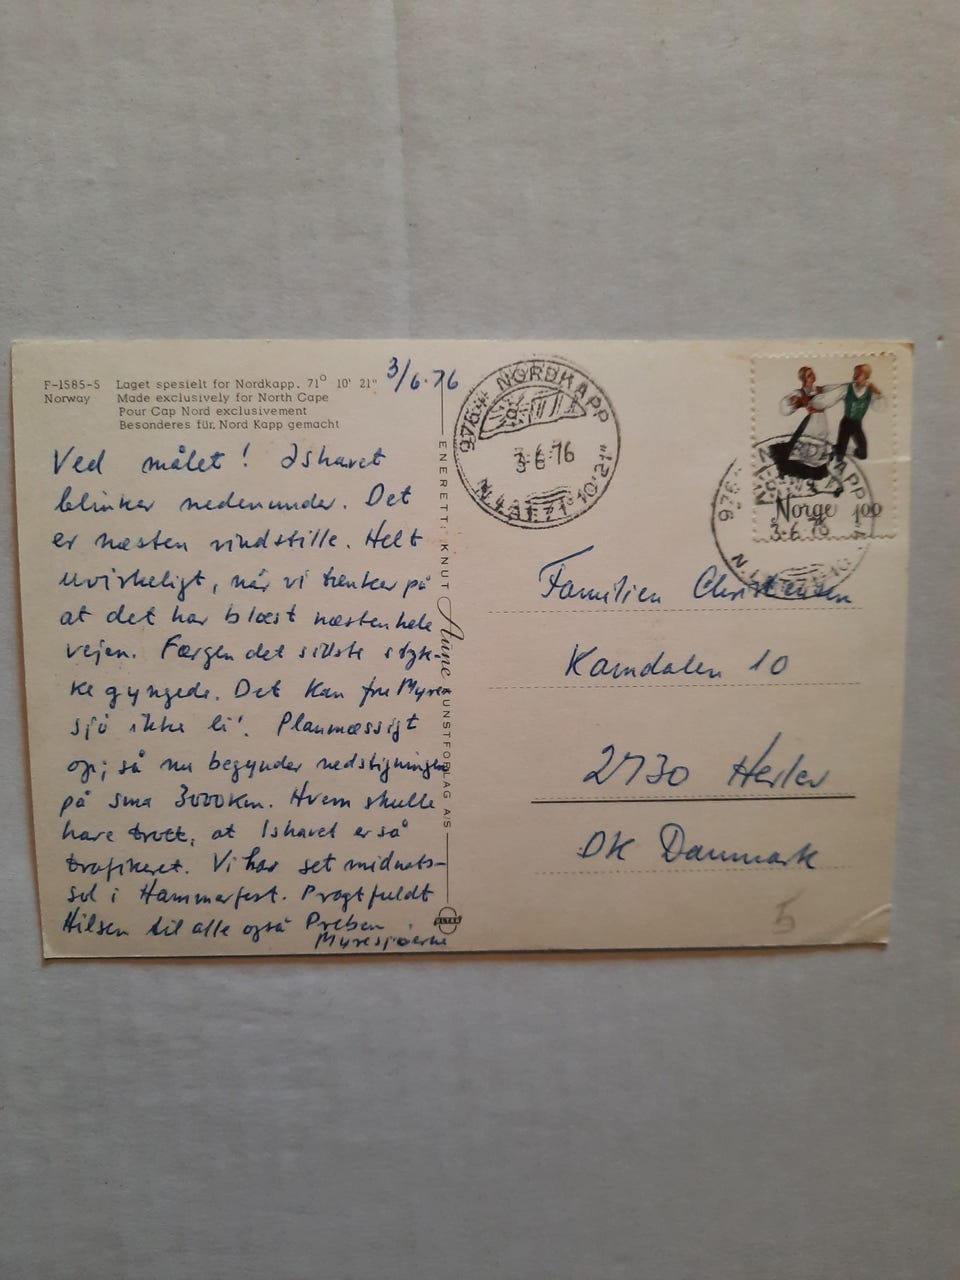 F-1585-5 Laget spesielt for Nordkapp. 71° 10' 21"
Norway Made exclusively for North Cape
Pour Cap Nord exclusivement
Besonderes für, Nord Kapp gemacht
3/6-76
Ved målet! Ishavet
blinker nedenunder. Det
er næsten vindstille. Helt
uvirkeligt, når vi tænker på
at det har blæst næsten hele
vejen. Færgen det sidste styk-
ke gyngede. Det kan fru Myre
sjö ikke li'. Planmæssigt
op; så nu begynder nedstigningen
på små 3000 km. Hvem skulle
have trott, at Ishavet er så
trafikeret. Vi har set midnats-
sol i Hammerfest. Pragtfuldt
Hilsen til alle også Preben
Myresjöerne
ENERETT: KNUT Aune KUNSTFORLAG A/S
ULTRA
9764 NORDKAPP
3-6-76
N.BR.71°10'21"
Norge 100
9764 NORDKAPP
3-6-76
Familien Christensen
Karndalen 10
2730 Herlev
DK Danmark
5